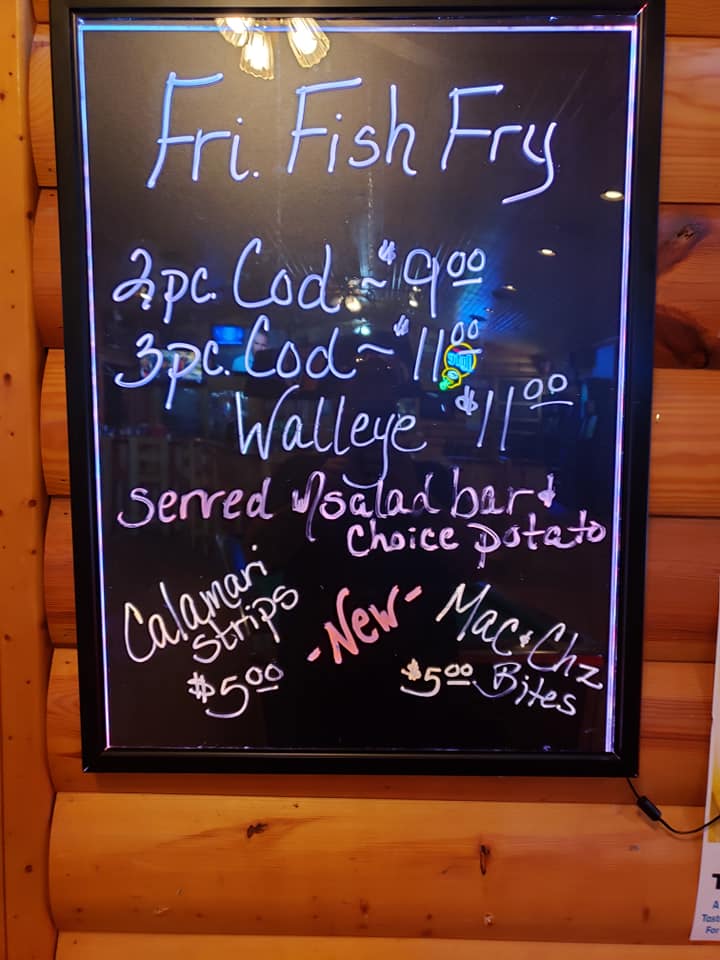 Fri. Fish Fry
2pc. Cod ~ $9.00
3pc. Cod ~ $11.00
Walleye $11.00
served w/salad bar &
choice potato
Calamari
strips
$5.00
-New-
Mac & Chz
$5.00 Bites